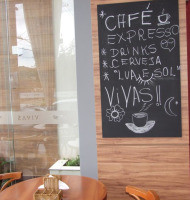 CAFÉ
EXPRESSO
*DRINKS
*CERVEJA
*"LUA E SOL"
VIVAS!!